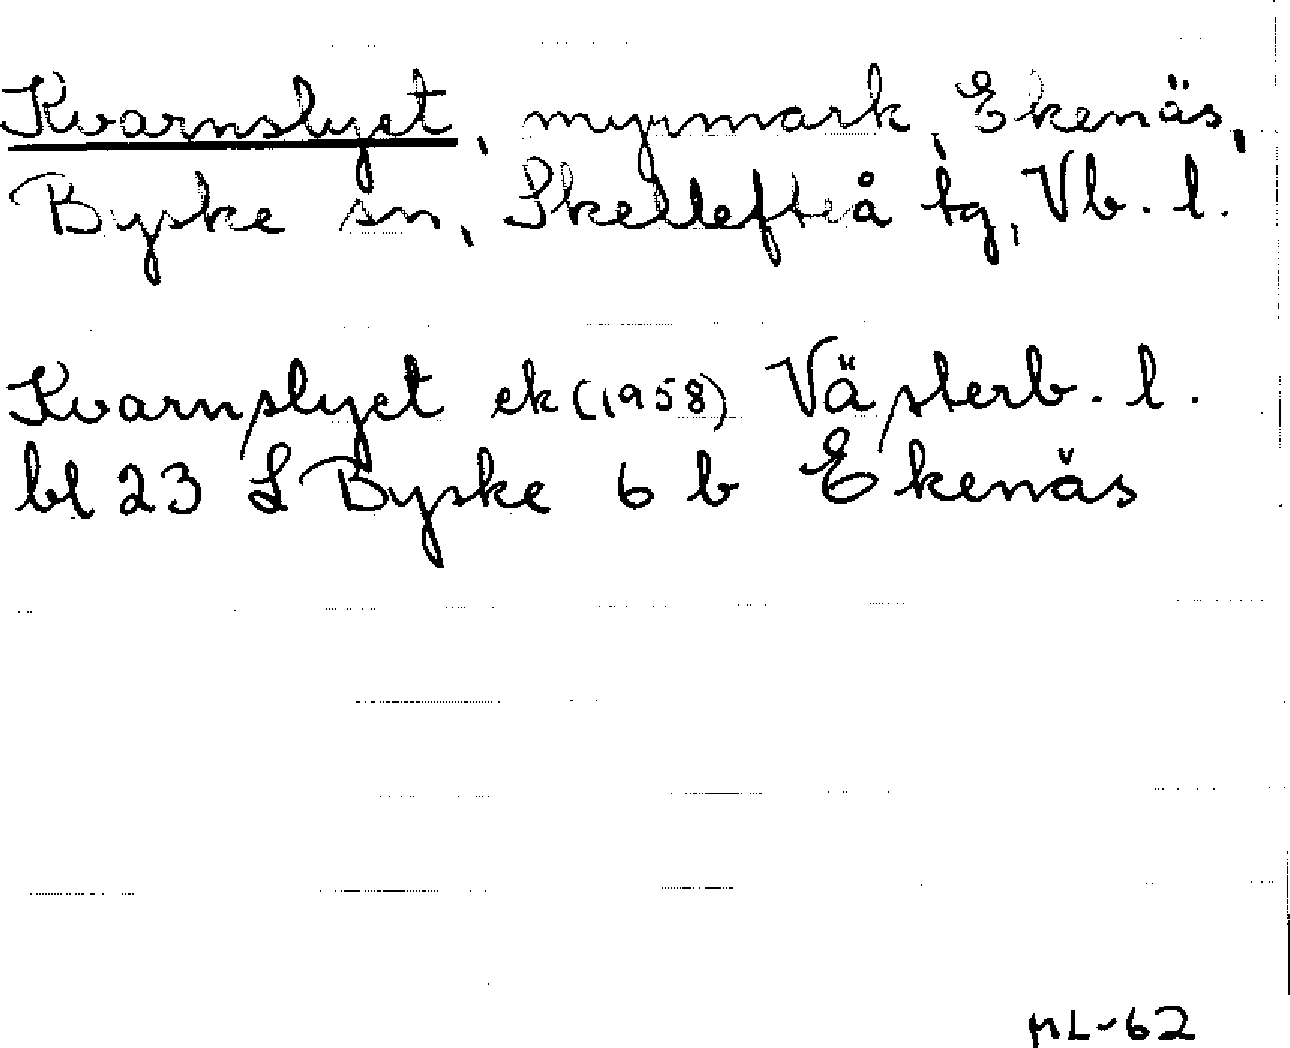 Kvarnslyet, myrmark, Ekenäs,
Byske sn, Skellefteå tg, Vb. l.
Kvarnslyet ek (1958) Västerb. l.
bl 23 S Byske 6 b Ekenäs
ML-62